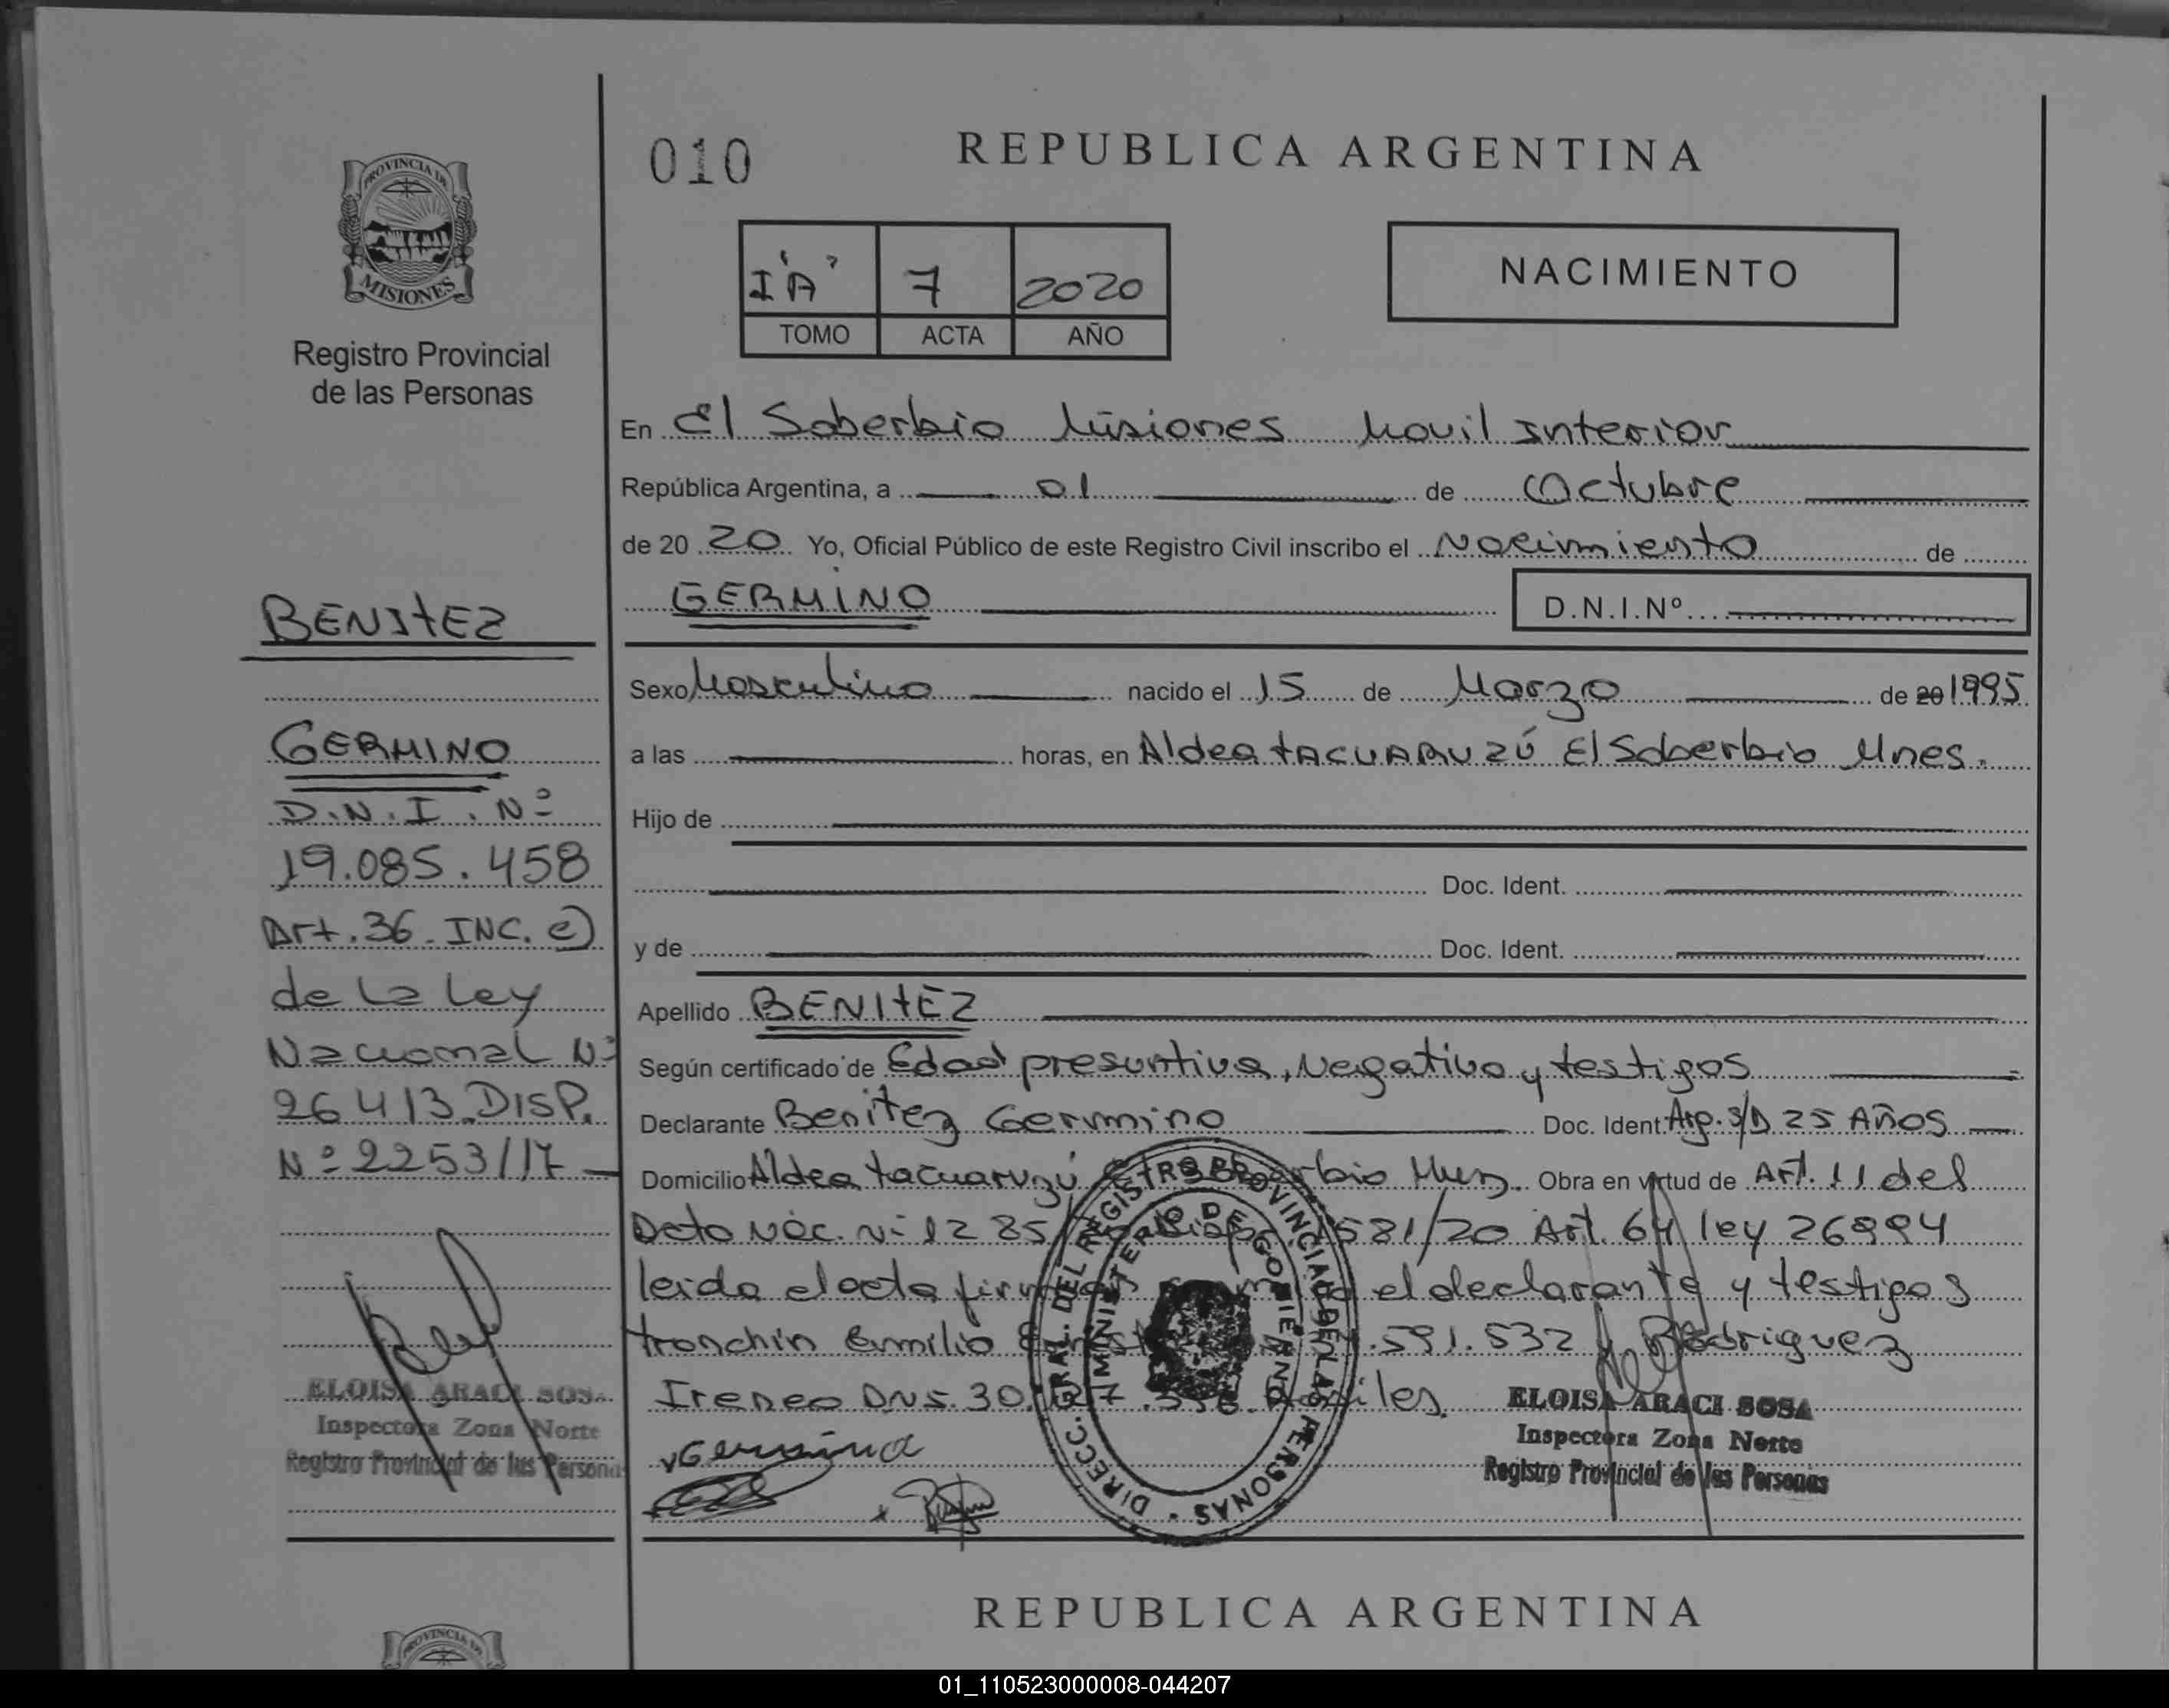 PROVINCIA DE
MISIONES
Registro Provincial
de las Personas
BENITEZ
GERMINO
D.N.I. Nº
19.085.458
Art. 36 - INC. e)
de la Ley
Nacional Nº
26413. DISP.
Nº 2253/17
ELOISA ARACI SOSA
Inspectora Zona Norte
Registro Provincial de las Personas
010
REPUBLICA ARGENTINA
I "A" 7 2020
TOMO ACTA AÑO
NACIMIENTO
En El Soberbio Misiones Movil Interior
República Argentina, a 01 de Octubre
de 20 20 Yo, Oficial Público de este Registro Civil inscribo el Nacimiento de
GERMINO D.N.I.Nº
Sexo Masculino nacido el 15 de Marzo de 20 1995
a las horas, en Aldea TACUARUZÚ El Soberbio Mnes.
Hijo de
Doc. Ident.
y de Doc. Ident.
Apellido BENITEZ
Según certificado de Edad presuntiva, Negativo y testigos
Declarante Benitez Germino Doc. Ident. Arg. S/D 25 AÑOS
Domicilio Aldea Tacuaruzú Obra en virtud de Art. 11 del
Dcto Nac. Nº 1285/ 581/20 Art. 64 ley 26994
leida el acta firman el declarante y testigos
Tronchin Emilio .591.532 y Rodriguez
Ireneo DNI. 30.
Germino
DIRECC. GRAL. DEL REGISTRO PROVINCIAL DE LAS PERSONAS -
MINISTERIO DE GOBIERNO
ELOISA ARACI SOSA
Inspectora Zona Norte
Registro Provincial de las Personas
REPUBLICA ARGENTINA
PROVINCIA DE
01_110523000008-044207